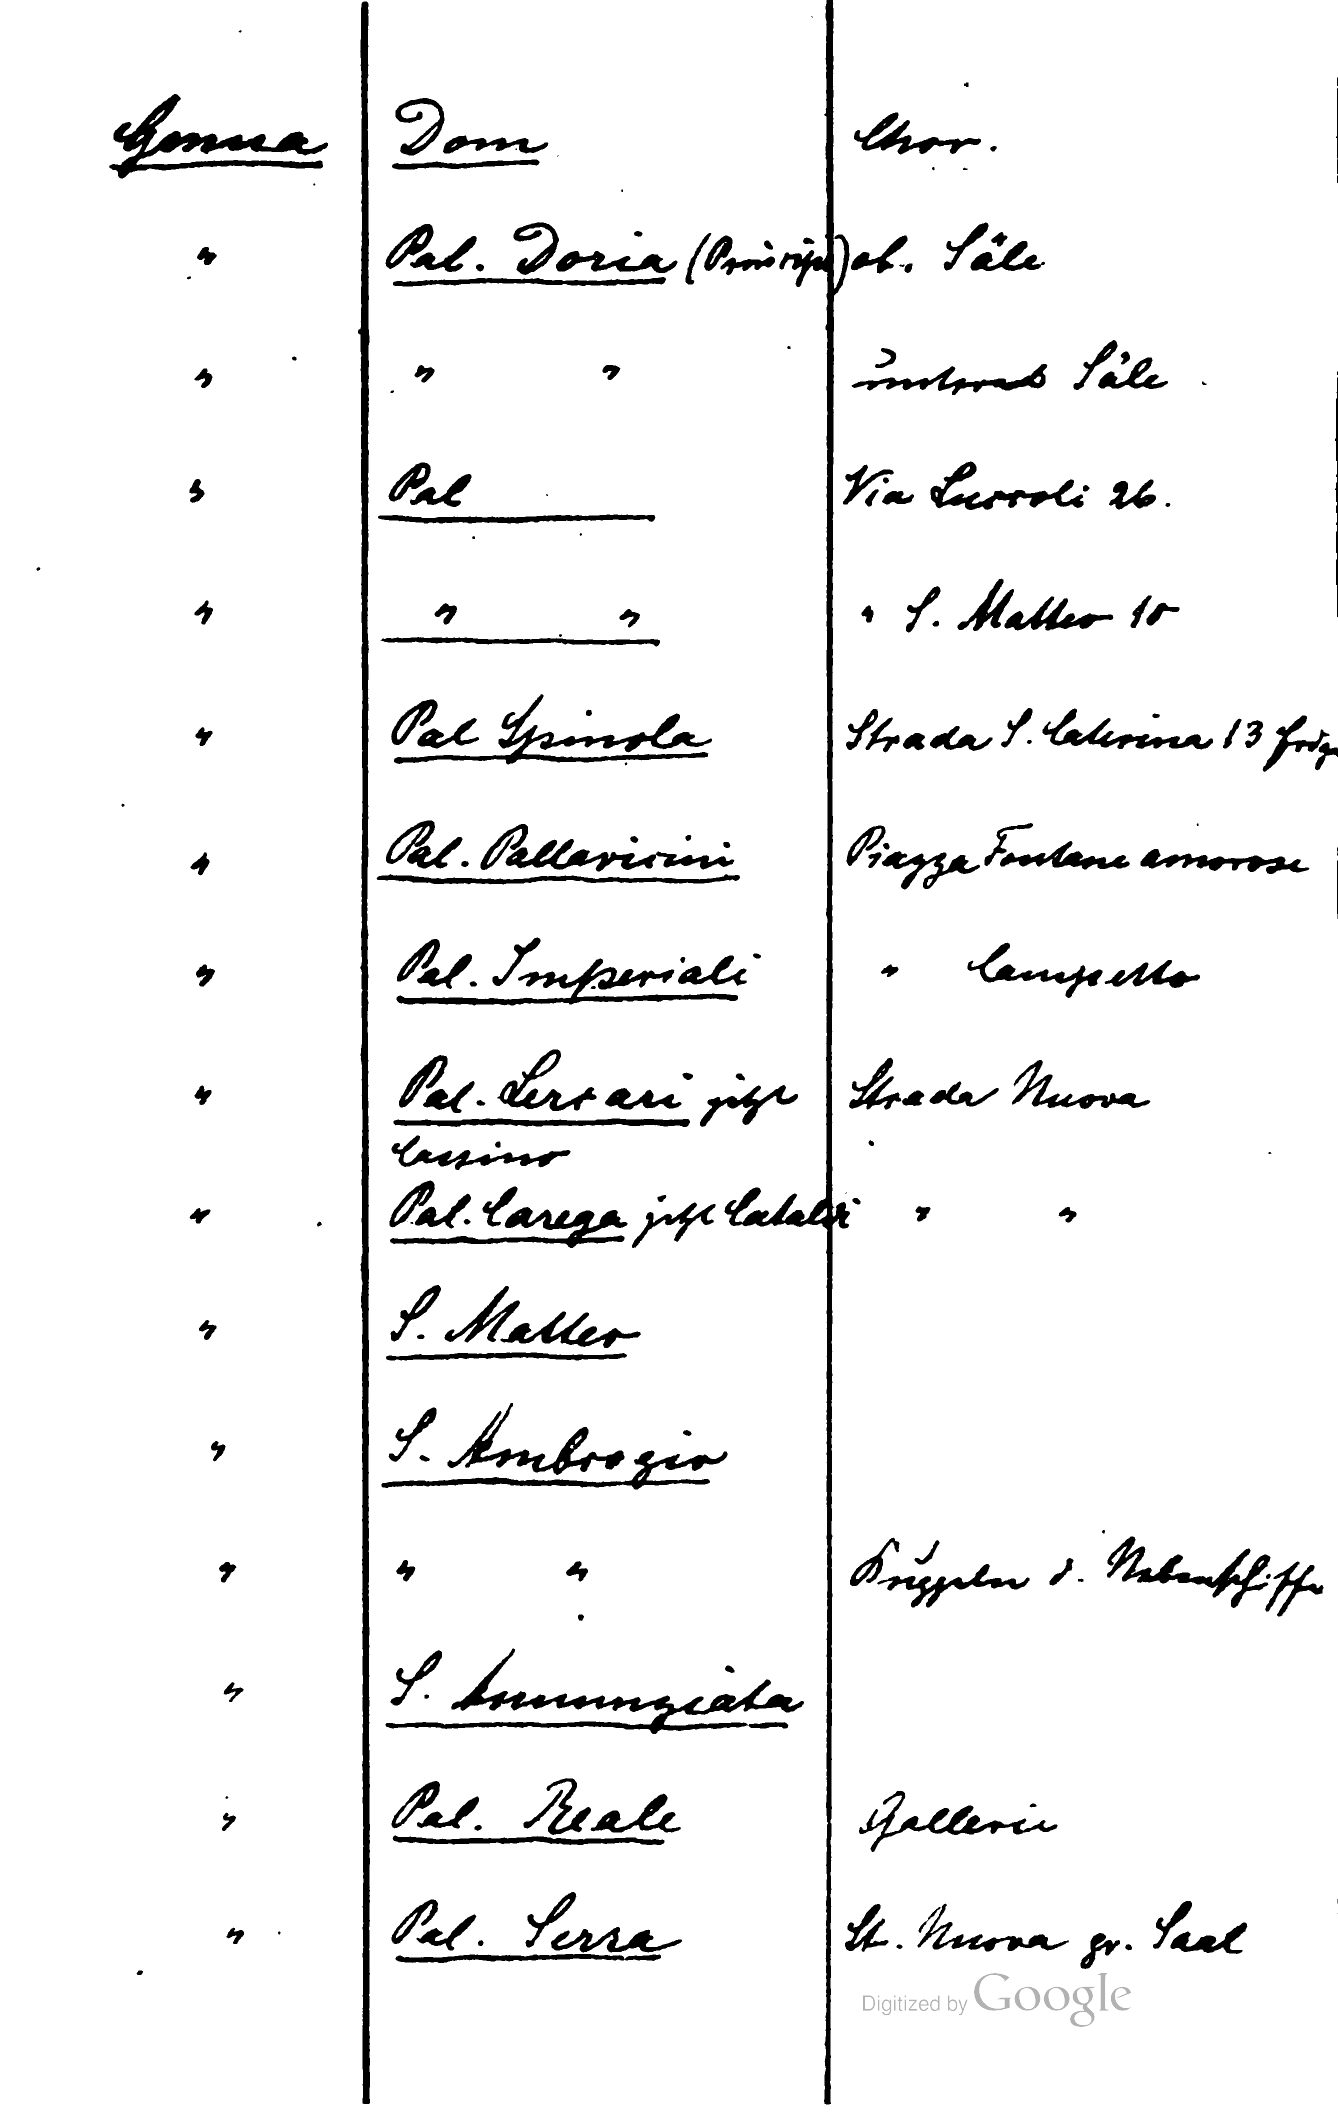 Genua Dom Chor.
" Pal. Doria (Principe) ob. Säle
" " " untere Säle
" Pal Via Luccoli 26.
" " " " S. Matteo 10
" Pal Spinola Strada S. Caterina 13
" Pal. Pallavicini Piazza Fontane amorose
" Pal. Imperiali " Campetto
" Pal. Lercari jetzt Strada Nuova
Cassino
" Pal. Carega jetzt Cataldi " "
" S. Matteo
" S. Ambrogio
" " " Kuppeln d. Nebenschiffe
" S. Annunziata
" Pal. Reale Gallerie
" Pal. Serra St. Nuova gr. Saal
Digitized by Google